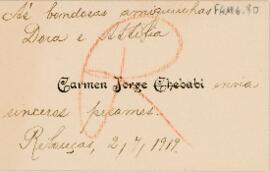 Ás bondosas amiguinhas
Dora e
Carmen Jorge Chebabi envia
sinceros pezames.
Rebouças, 2/7/1919.